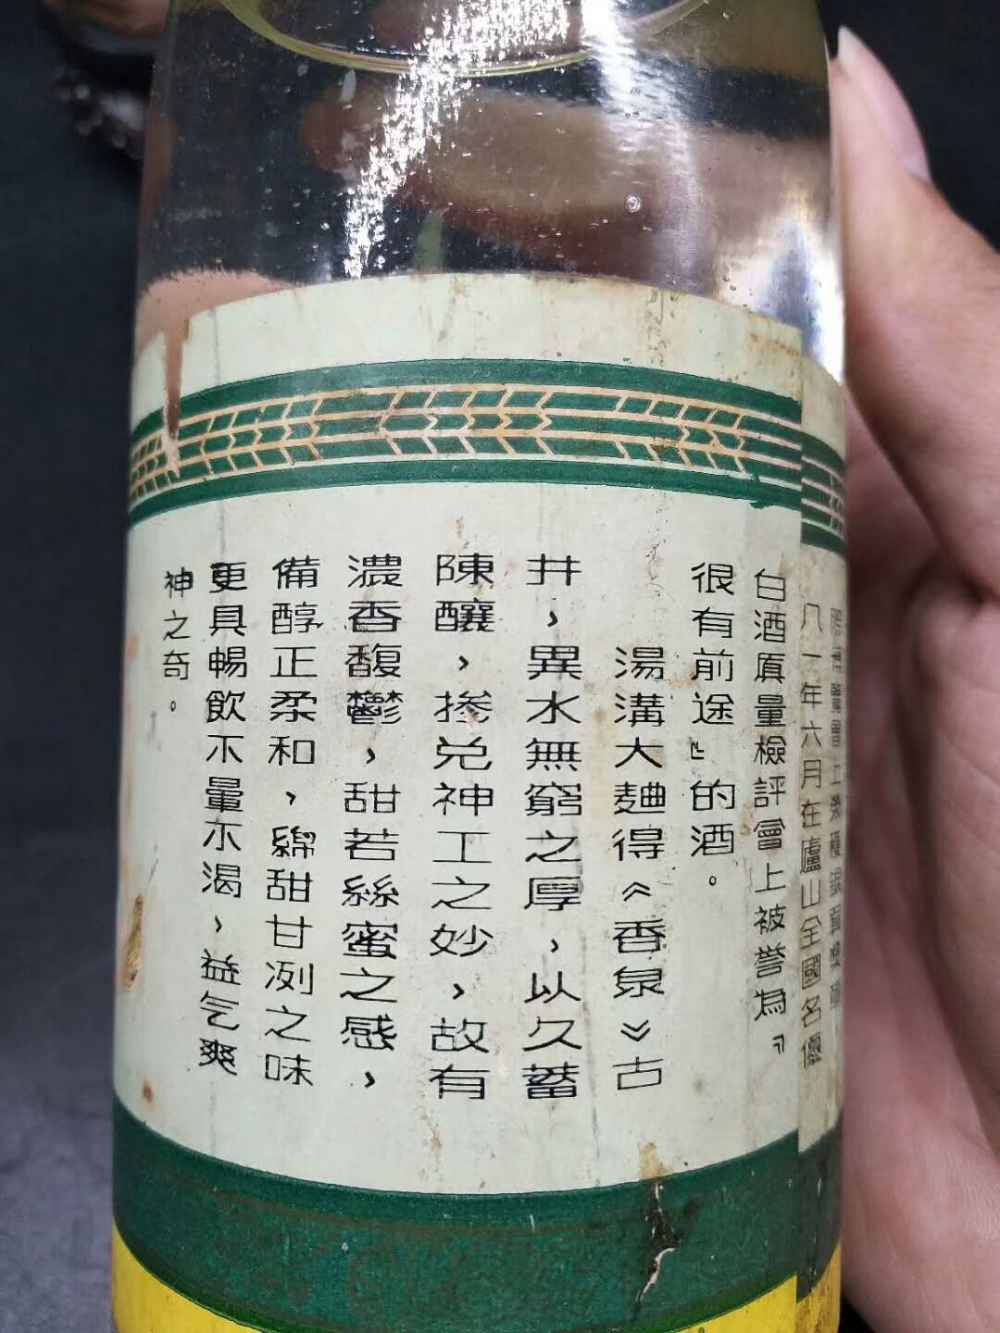 八一年六月在廬山全國名優
白酒質量檢評會上被誉為『
很有前途』的酒。
湯溝大麯得《香泉》古
井，異水無窮之厚，以久蓄
陳釀，摻兌神工之妙，故有
濃香馥鬱，甜若絲蜜之感，
備醇正柔和，綿甜甘冽之味
更具暢飲不暈不渴，益气爽
神之奇。